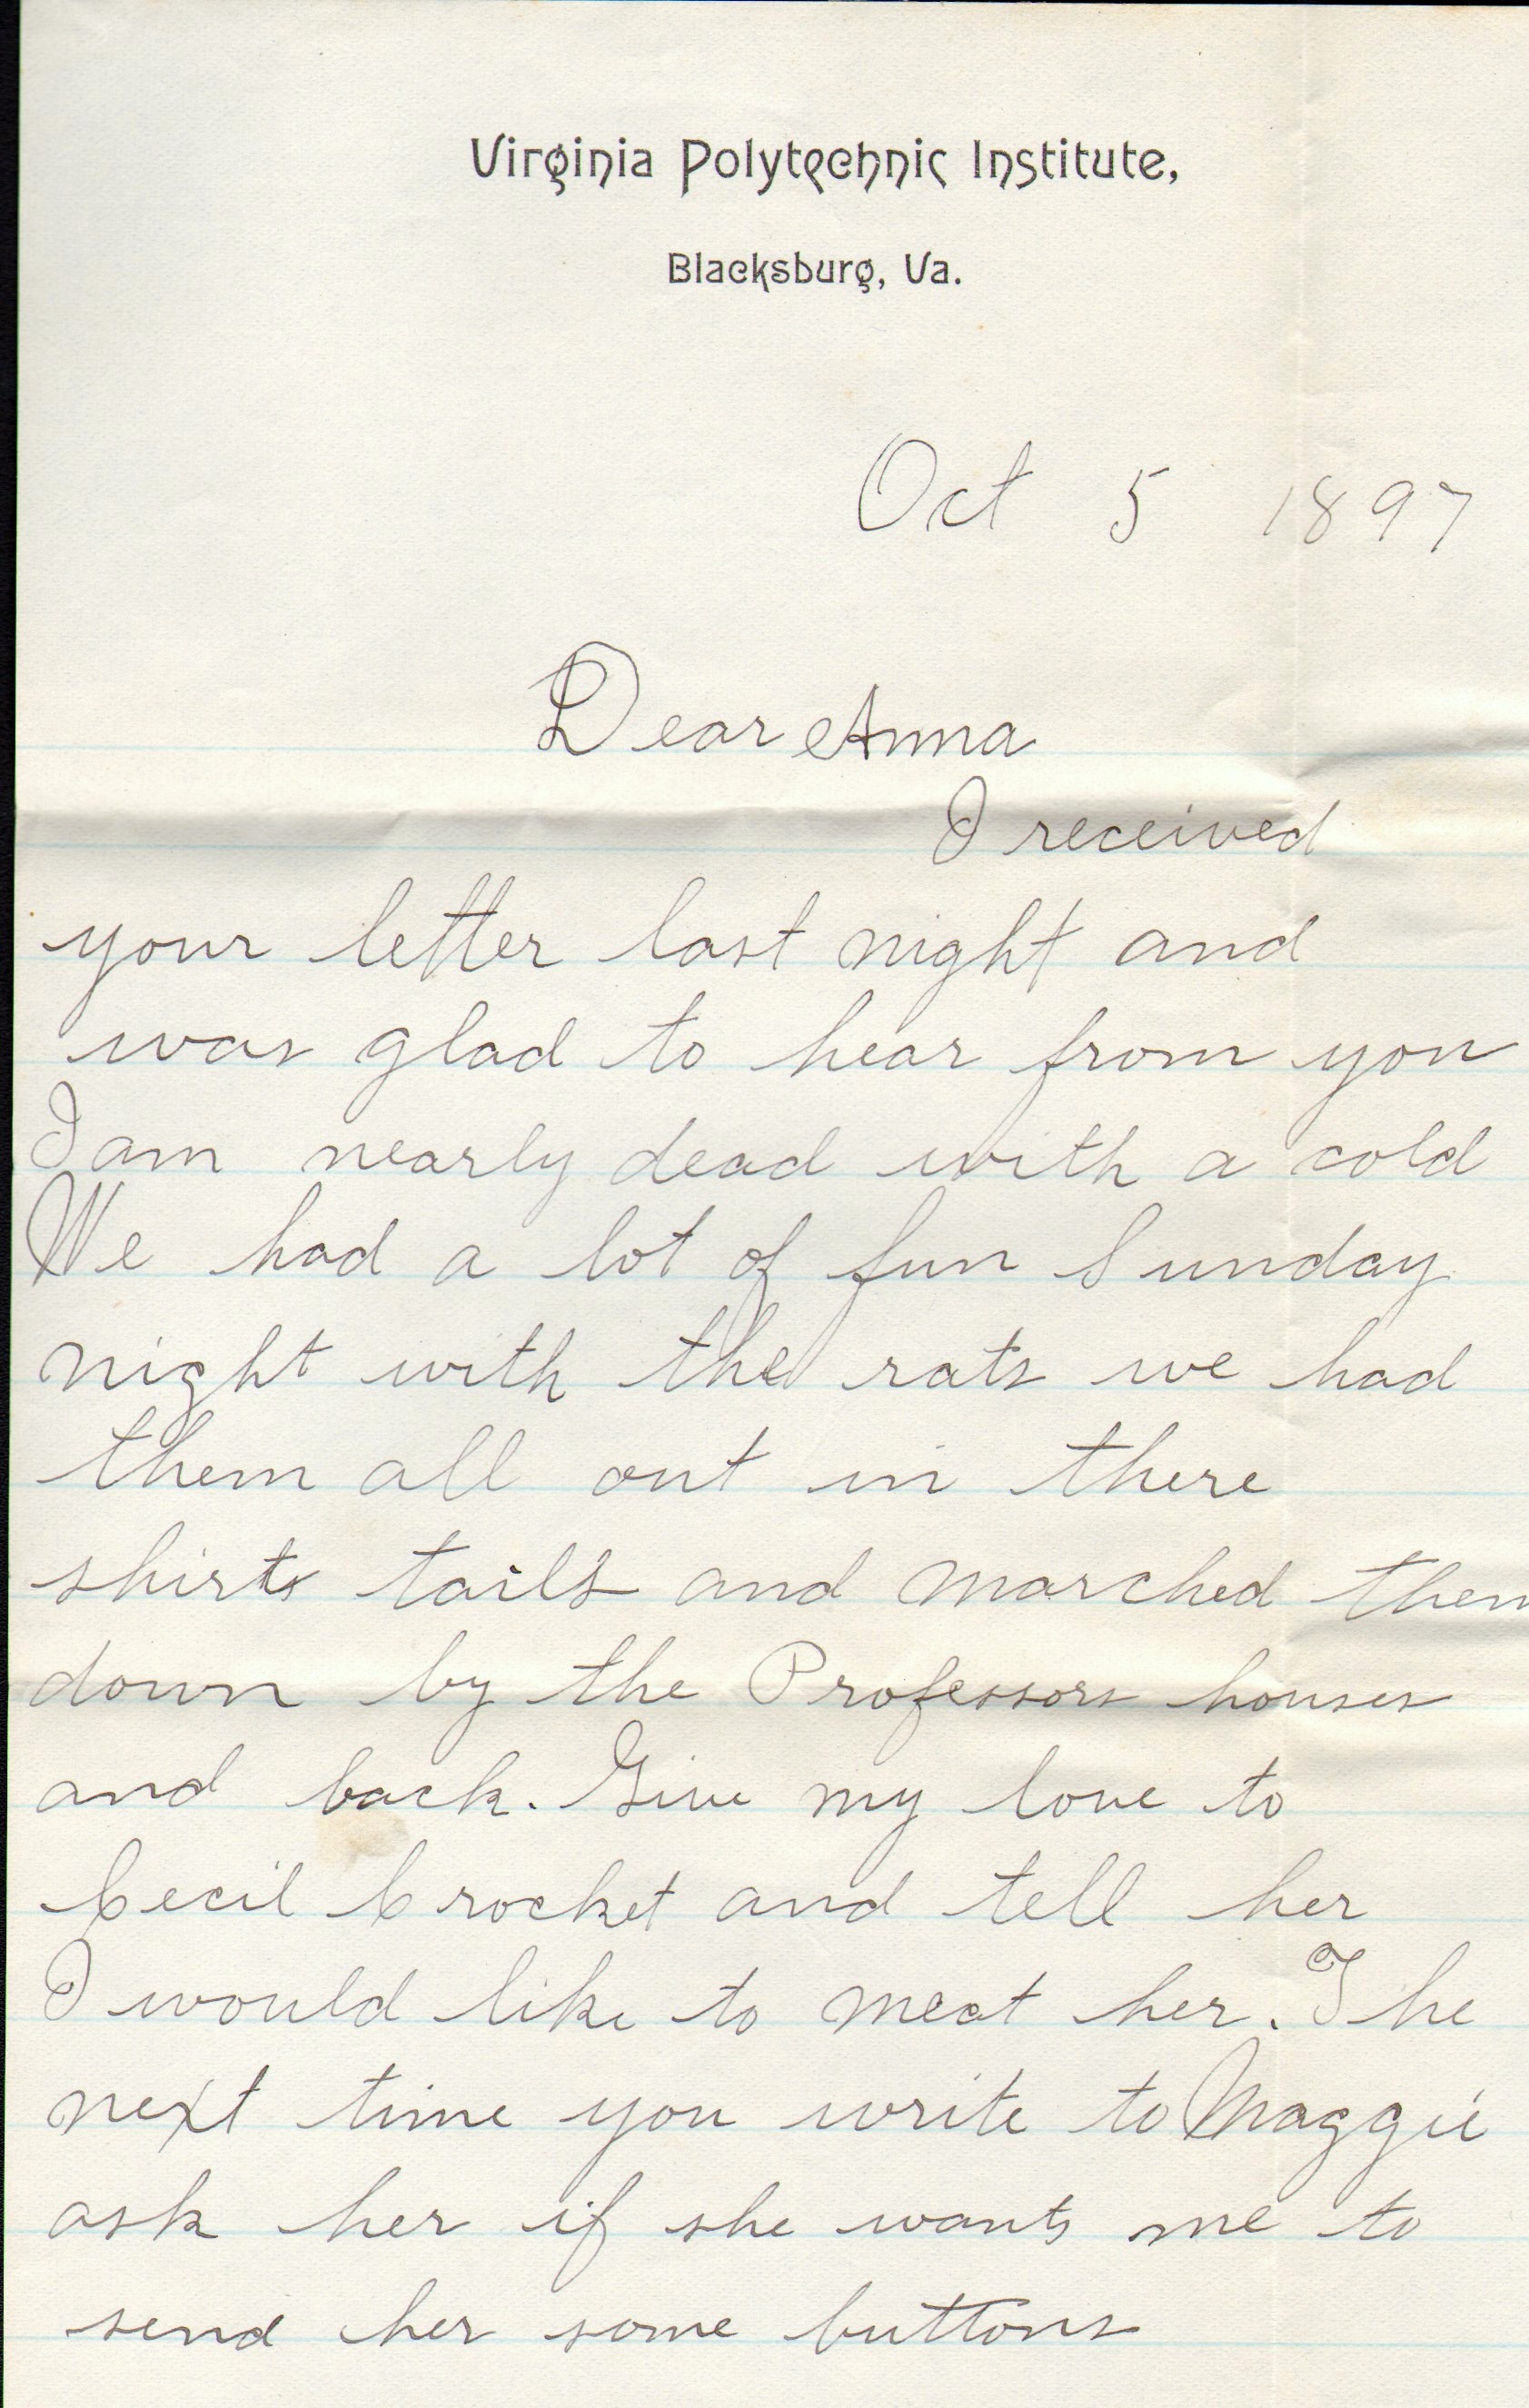 Virginia Polytechnic Institute,
Blacksburg, Va.
Oct 5 1897
Dear Anna
I received
your letter last night and
was glad to hear from you
I am nearly dead with a cold
We had a lot of fun Sunday
night with the rats we had
them all out in there
shirts tails and marched them
down by the Professors houses
and back. Give my love to
Cecil Crocket and tell her
I would like to meat her. The
next time you write to Maggie
ask her if she wants me to
send her some buttons